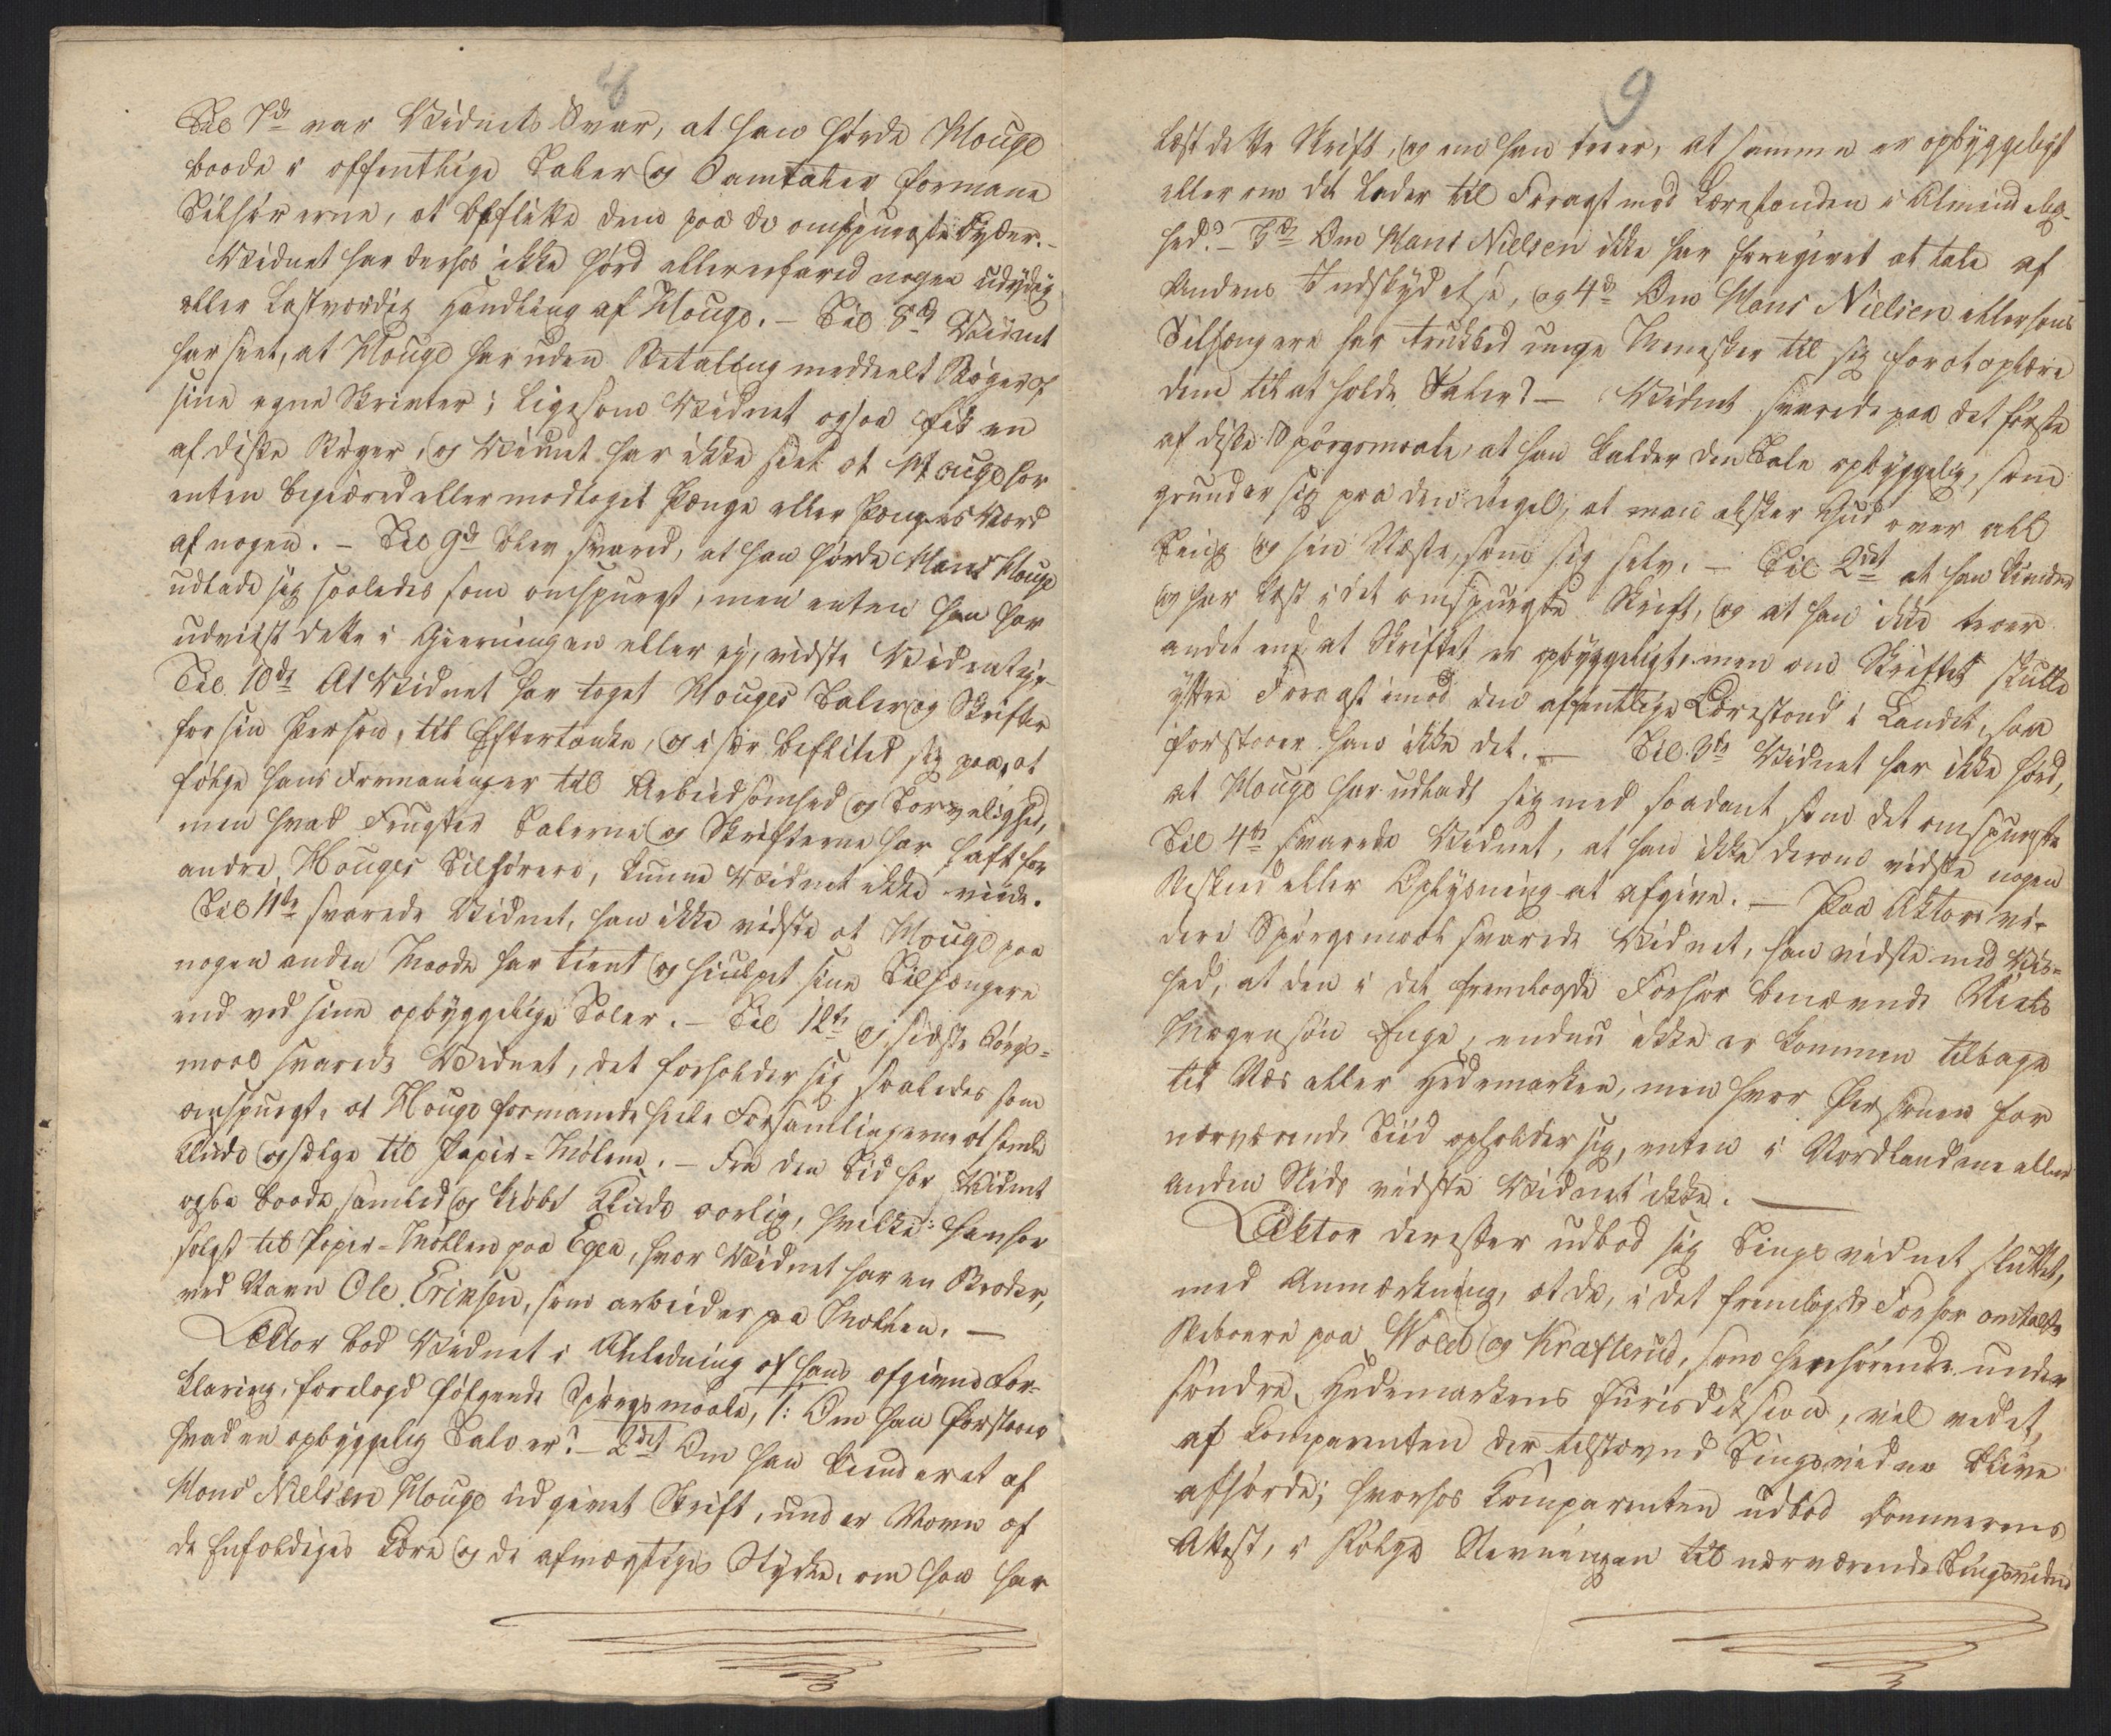 8
Til 7de var Vidnets Svar, at han hørde Houge
baade i offentlige Taler og Samtaler formane
Tilhørerne, at beflitte dem paa de omspurgte Dyder. –
Vidnet har derhos ikke hørd eller erfared nogen udydig
eller lastværdig Handling af Houge. – Til 8de Vidnet
har seet, at Houge har uden Betaling meddeelt Bøger af
sine egne Skrivter; ligesom Vidnet ogsaa fik en
af disse Bøger, og Vidnet har ikke seet at Houge har
enten begiæred eller modtaget Penge eller Penges Værd
af nogen. – Til 9de blev svared, at han hørde Hans Houge
udlade sig saaledes som omspurgt, men enten han har
udviist dette i Gierningen eller ej, vidste Vidnet ej. –
Til 10de At Vidnet har taget Houges Taler og Skrifter
for sin Person, til Eftertanke, og i sær beflitted sig paa, at
følge hans Formaninger til Arbeidsomhed og Tarvelighed,
men hvad Frugter Talerne og Skrifterne har haft for
andre Houges Tilhørere, kunne Vidnet ikke viide.
Til 11te svarede Vidnet, han ikke vidste at Houge paa
nogen anden Maade har tient og hiulpet sine Tilhængere
end ved sine opbyggelige Taler. – Til 12te og sidste Spørgs=
maal svarede Vidnet, det forholder sig saaledes som
omspurgt, at Houge formanede hele Forsamlingerne at samle
Klude og sælge til Papir-Møllene. – Fra den Tid har Vidnet
ogsaa baade samled og kiøbt Klude aarlig, hvilke han har
solgt til Papir-Møllen paa Egea, hvor Vidnet har en Broder,
ved Navn Ole Eriksen, som arbeider paa Møllen. –
Aktor bad Vidnet i Anledning af hans afgivne For-
klaring, forelagd følgende Spørgsmaale, 1: Om han forstaaer
hvad en opbyggelig Tale er? – 2det Om han kiender et af
Hans Nielsen Houge udgivet Skrift, under Navn af
de Enfoldiges Lære og de afmægtiges Styrke, om han har
9
læst dette Skrift, og om han troer, at samme er opbyggeligt
eller om det leder til Foragt mod Lærestanden i Almindelig-
hed? – 3de Om Hans Nielsen ikke har foregivet at tale af
Aandens Indskydelse, og 4de Om Hans Nielsen eller hans
Tilhængere har trukked unge Mennesker til sig for at oplære
dem til at holde Taler? – Vidnet svarede paa det første
af disse Spørgsmaale, at han kalder den Tale opbyggelig, som
grunder sig paa den Regel, at man elsker Gud over all
Ting og sin Næste, som sig selv. – Til 2det at han kiender
og har læst i det omspurgte Skrift, og at han ikke troer
andet end at Skriftet er opbyggeligt, men om Skriftet skulle
yttre Foragt imod den offentlige Lærestand i Landet, saa
forstaaer han ikke det. – Til 3de Vidnet har ikke hørd,
at Houge har udladt sig med saadant som det omspurgte
Til 4de svarede Vidnet, at han ikke derom vidste nogen
Beskeed eller Oplysning at afgive. – Paa Aktors vi-
dere Spørgsmaal svarede Vidnet, han vidste med Vis=
hed, at den i det fremlagde Forhør benævnde Niels
Mogensøn Enge, endnu ikke er kommen tilbage
til Næs eller Hedemarken, men hvor Personen for
nærværende Tiid opholder sig, enten i Nordlandene eller
anden Steds vidste Vidnet ikke. –
Aktor derefter udbad sig Tingsvidnet sluttet,
med Anmærkning, at de, i det fremlagde Forhør omtalte
Beboere paa Wold og Krafterud, som henhørende under
søndre Hedemarkens Jurisdiksion, vil ved et,
af Komparenten der tilstævned Tingsvidne blive
afhørde; hvorhos Komparenten udbad Dommerens
Attest, i Følge Stevningen til nærværende Tingsvidne